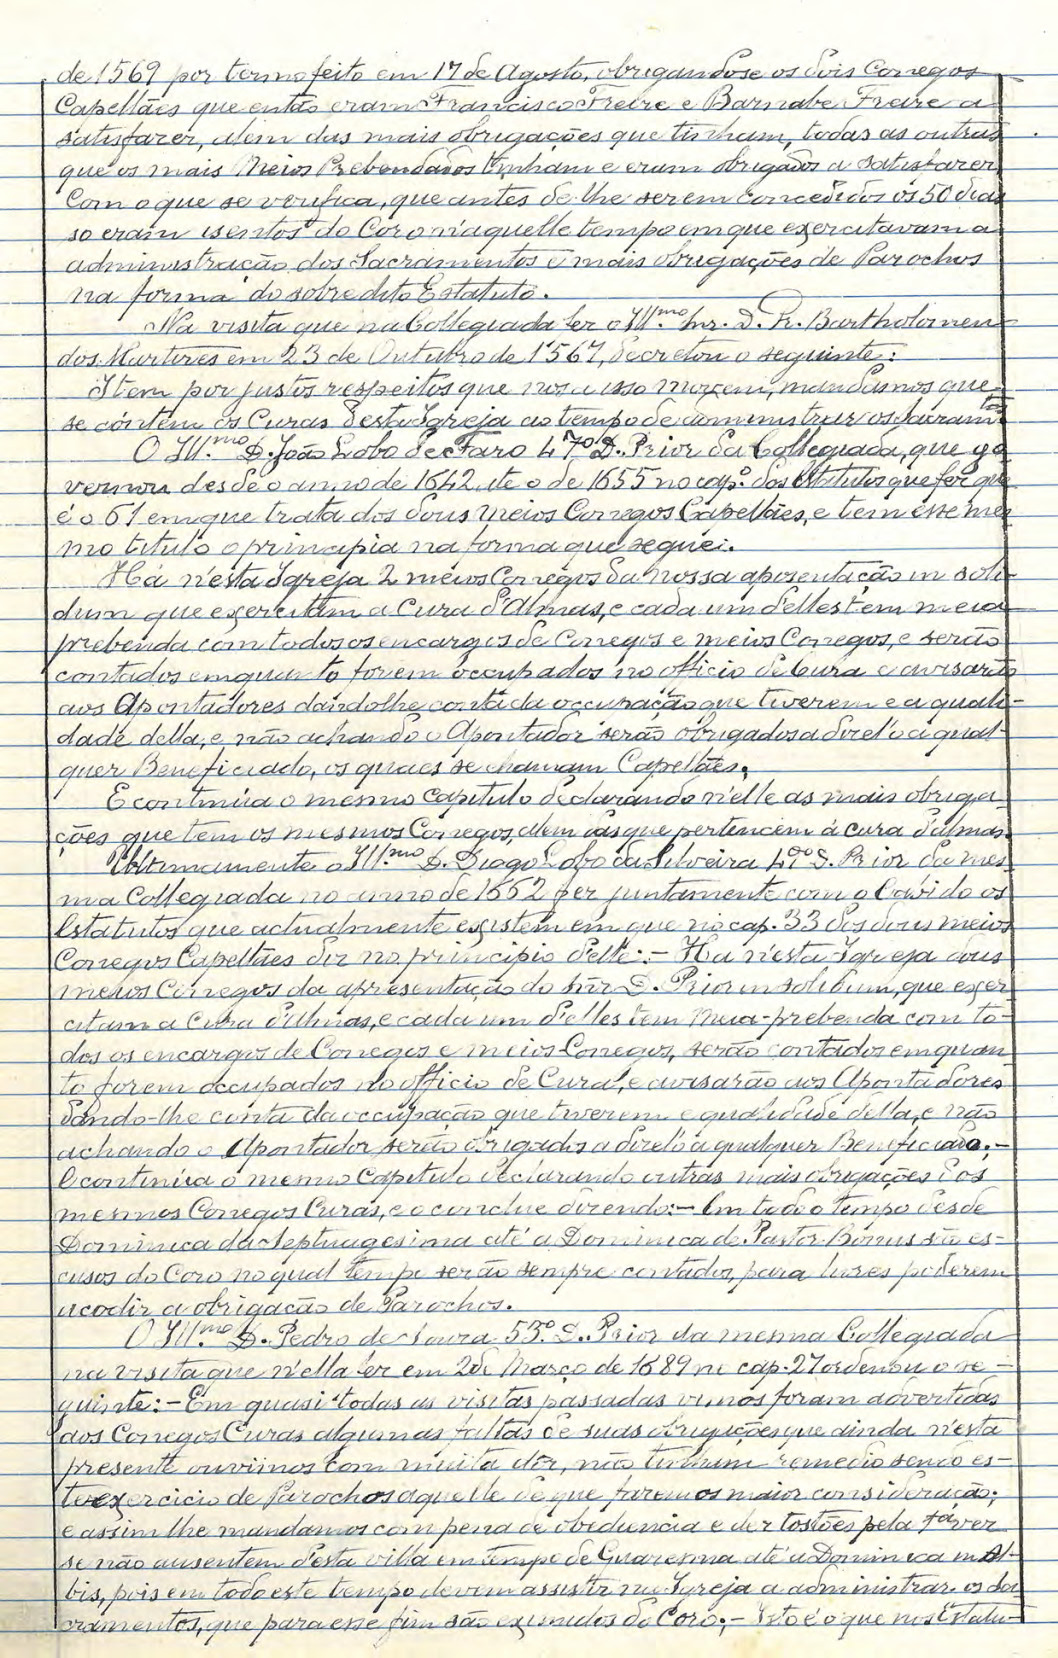 de 1569 por termo feito em 17 de Agosto, obrigandose os dois Conegos
Capellães que então eram Francisco Freire e Barnabe Freire a
satisfazer, alem das mais obrigações que tinham, todas as outras
que os mais Meios Prebendados tinham e eram obrigados a satisfazer,
Com o que se verifica, que antes de lhe serem concedidos os 50 dias
so eram isentos do Coro n'aquelle tempo em que exercitavam a
administração dos Sacramentos e mais obrigações de Parochos
na forma do sobredito Estatuto.
Na visita que na Collegiada fez o Ill.mo Snr. D. Fr. Bartholomeu
dos Martires em 23 de Outubro de 1567, decretou o seguinte:
Item por justos respeitos que nos a isso movem, mandamos que
se contem os Curas desta Igreja ao tempo de administrar os sacram.tos
O Ill.mo D. João Lobo de Faro 47º D. Prior da Collegiada, que go
vernou desde o anno de 1642 ate o de 1655 no cap.º dos Statutos que fez que
é o 61 em que trata dos dous meios Conegos Capellães, e tem esse mes
mo titulo o principia na forma que seguei.
Há n'esta Igreja 2 meios Conegos da nossa apresentação in soli-
dum que exercitam a Cura d'Almas, e cada um d'elles tem meia
prebenda com todos os encargos de Conegos e meios Conegos, e serão
contados emquanto forem occupados no officio de Cura e avisarão
aos Apontadores dandolhe conta da occupação que tiverem e a quali-
dade della, e não achando o Apontador serão obrigados a direl'o a qual-
quer Beneficiado, os quaes se chamam Capellães.
E continúa o mesmo capitulo declarando n'elle as mais obriga-
ções que tem os mesmos Conegos, alem das que pertencem á cura d'almas.
Ultimamente o Ill.mo D. Diogo Lobo da Silveira 49º D. Prior da mes
ma Collegiada no anno de 1662 fez juntamente com o Cabido os
Estatutos que actualmente existem em que no cap. 33 dos dous meios
Conegos Capellães diz no principio d'elle: - Ha n'esta Igreja dous
meios Conegos da apresentação do Snr D. Prior in solidum, que exer
citam a Cura d'Almas, e cada um d'elles tem Meia-prebenda com to-
dos os encargos de Conegos e meios Conegos, serão contados emquan
to forem occupados no officio de Cura, e avisarão aos Apontadores
dando-lhe conta da occupação que tiverem e qualidade della, e não
achando o Apontador serão obrigados a direl'o a qualquer Beneficiado; -
E continúa o mesmo Capitulo declarando outras mais obrigações dos
mesmos Conegos Curas, e o conclue dizendo: - Em todo o tempo desde
Dominica da Septuagesima até a Dominica de Pastor Bonus são es-
cusos do Coro no qual tempo serão sempre contados, para lives poderem
acodir a obrigação de Parochos.
O Ill.mo D. Pedro de Souza 53º D. Prior da mesma Collegiada
na visita que n'ella fez em 2 de Março de 1689 no cap. 27 ordenou o se-
guinte: - Em quasi todas as visitas passadas vimos foram advertidas
aos Conegos Curas algumas faltas de suas obrigações que ainda n'esta
presente ouvimos com muita dôr, não tinham remedio sendo es-
te exercicio de Parochos aquelle de que faremos maior consideração;
e assim lhe mandamos com pena de obediencia e dez tostões pela 1ª vez
se não ausentem d'esta villa em tempo de Quaresma até a Dominica in Al-
bis, pois em todo este tempo devem assistir na Igreja a administrar os Sa
cramentos, que para esse fim são eximidos do Coro; - Isto é o que nos Estatu-